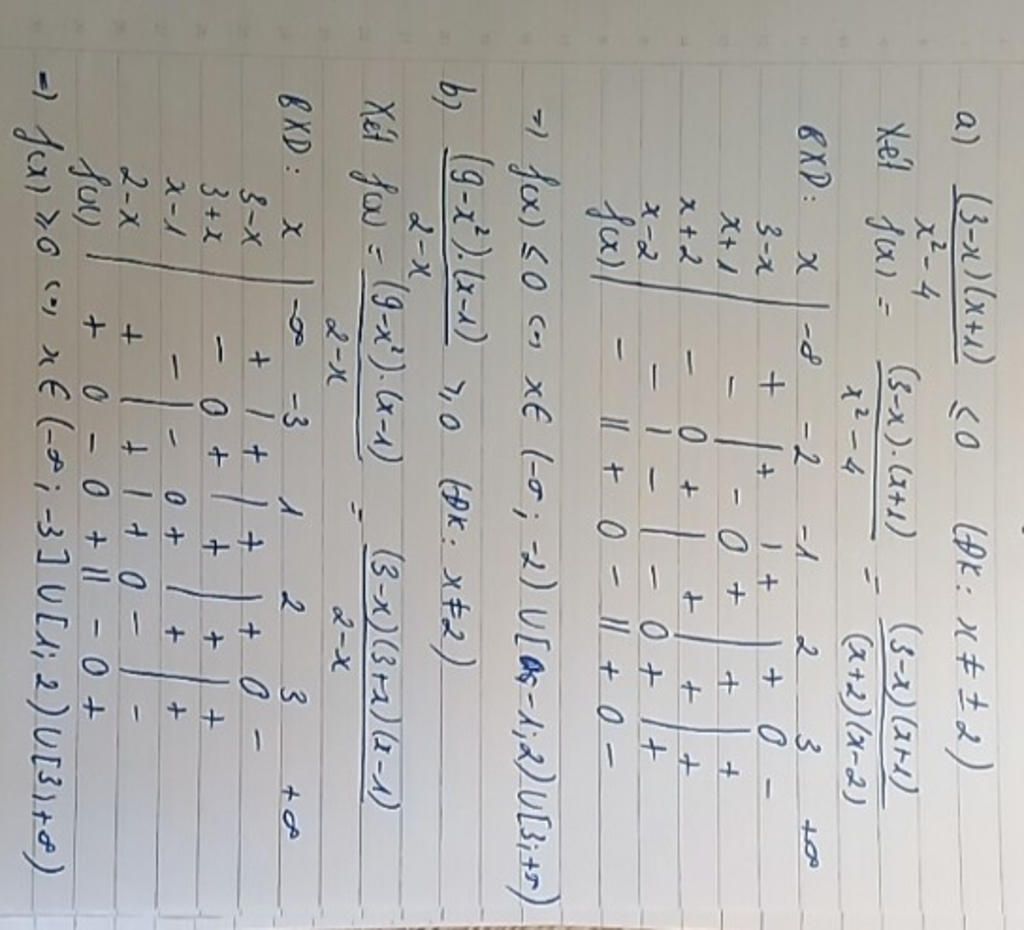 a) (3-x)(x+1) / x² - 4 ≤ 0 (ĐK: x ≠ ± 2)
Xét f(x) = (3-x).(x+1) / x² - 4 = (3-x)(x+1) / (x+2)(x-2)
BXD: x | -∞ -2 -1 2 3 +∞
3-x | + | + | + | + 0 -
x+1 | - | - 0 + | + | +
x+2 | - 0 + | + | + | +
x-2 | - | - | - 0 + | +
f(x) | - || + 0 - || + 0 -
=> f(x) ≤ 0 <=> x ∈ (-∞; -2) ∪ [-1; 2) ∪ [3; +∞)
b) (9-x²).(x-1) / 2-x ≥ 0 (ĐK: x ≠ 2)
Xét f(x) = (9-x²).(x-1) / 2-x = (3-x)(3+x)(x-1) / 2-x
BXD: x | -∞ -3 1 2 3 +∞
3-x | + | + | + | + 0 -
3+x | - 0 + | + | + | +
x-1 | - | - 0 + | + | +
2-x | + | + | + 0 - | -
f(x) | + 0 - 0 + || - 0 +
=> f(x) ≥ 0 <=> x ∈ (-∞; -3] ∪ [1; 2) ∪ [3; +∞)